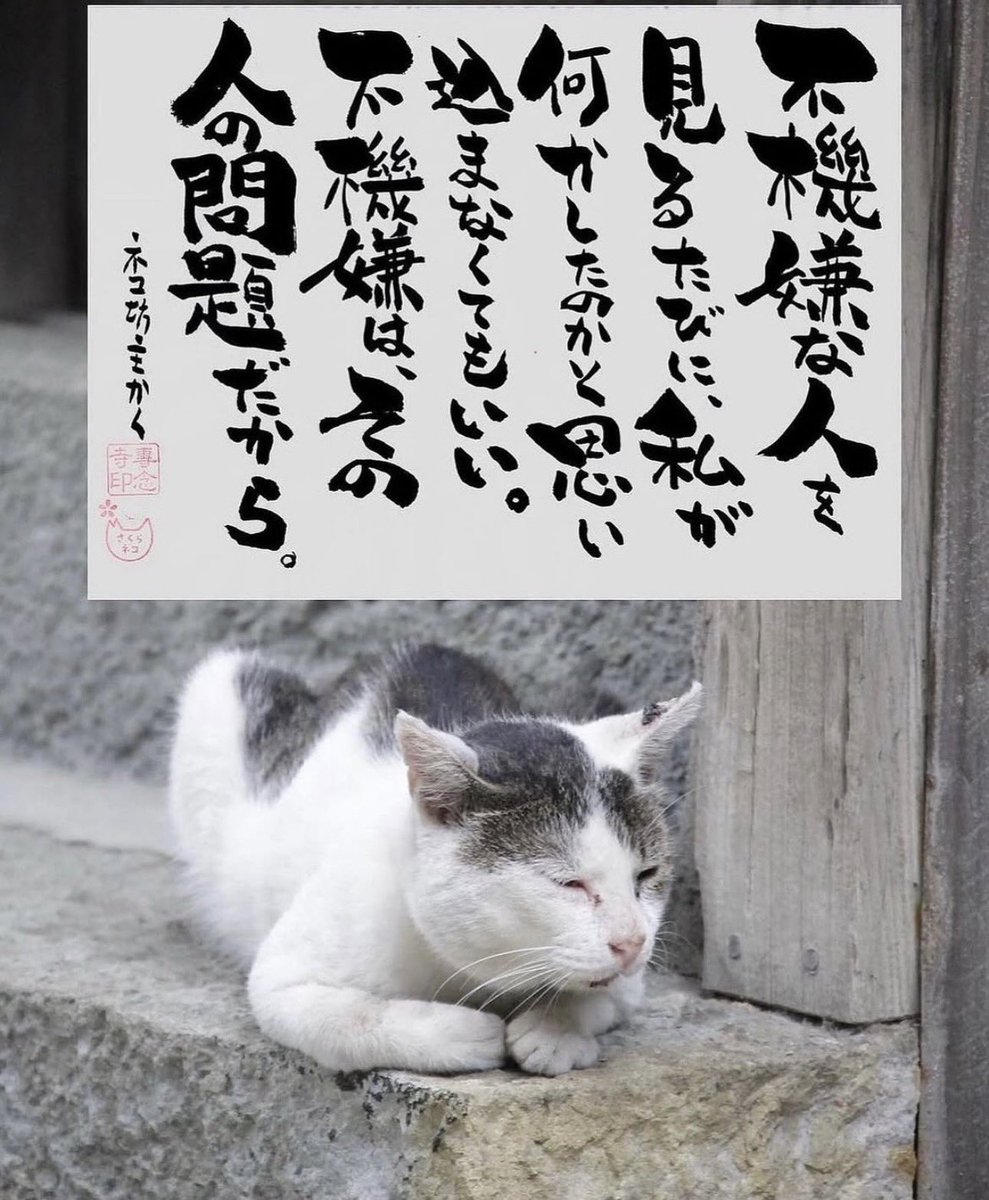 不機嫌な人を
見るたびに、私が
何かしたのかと思い
込まなくてもいい。
不機嫌は、その
人の問題だから。
ネコ坊主かく
専念
寺印
さくら
ネコ